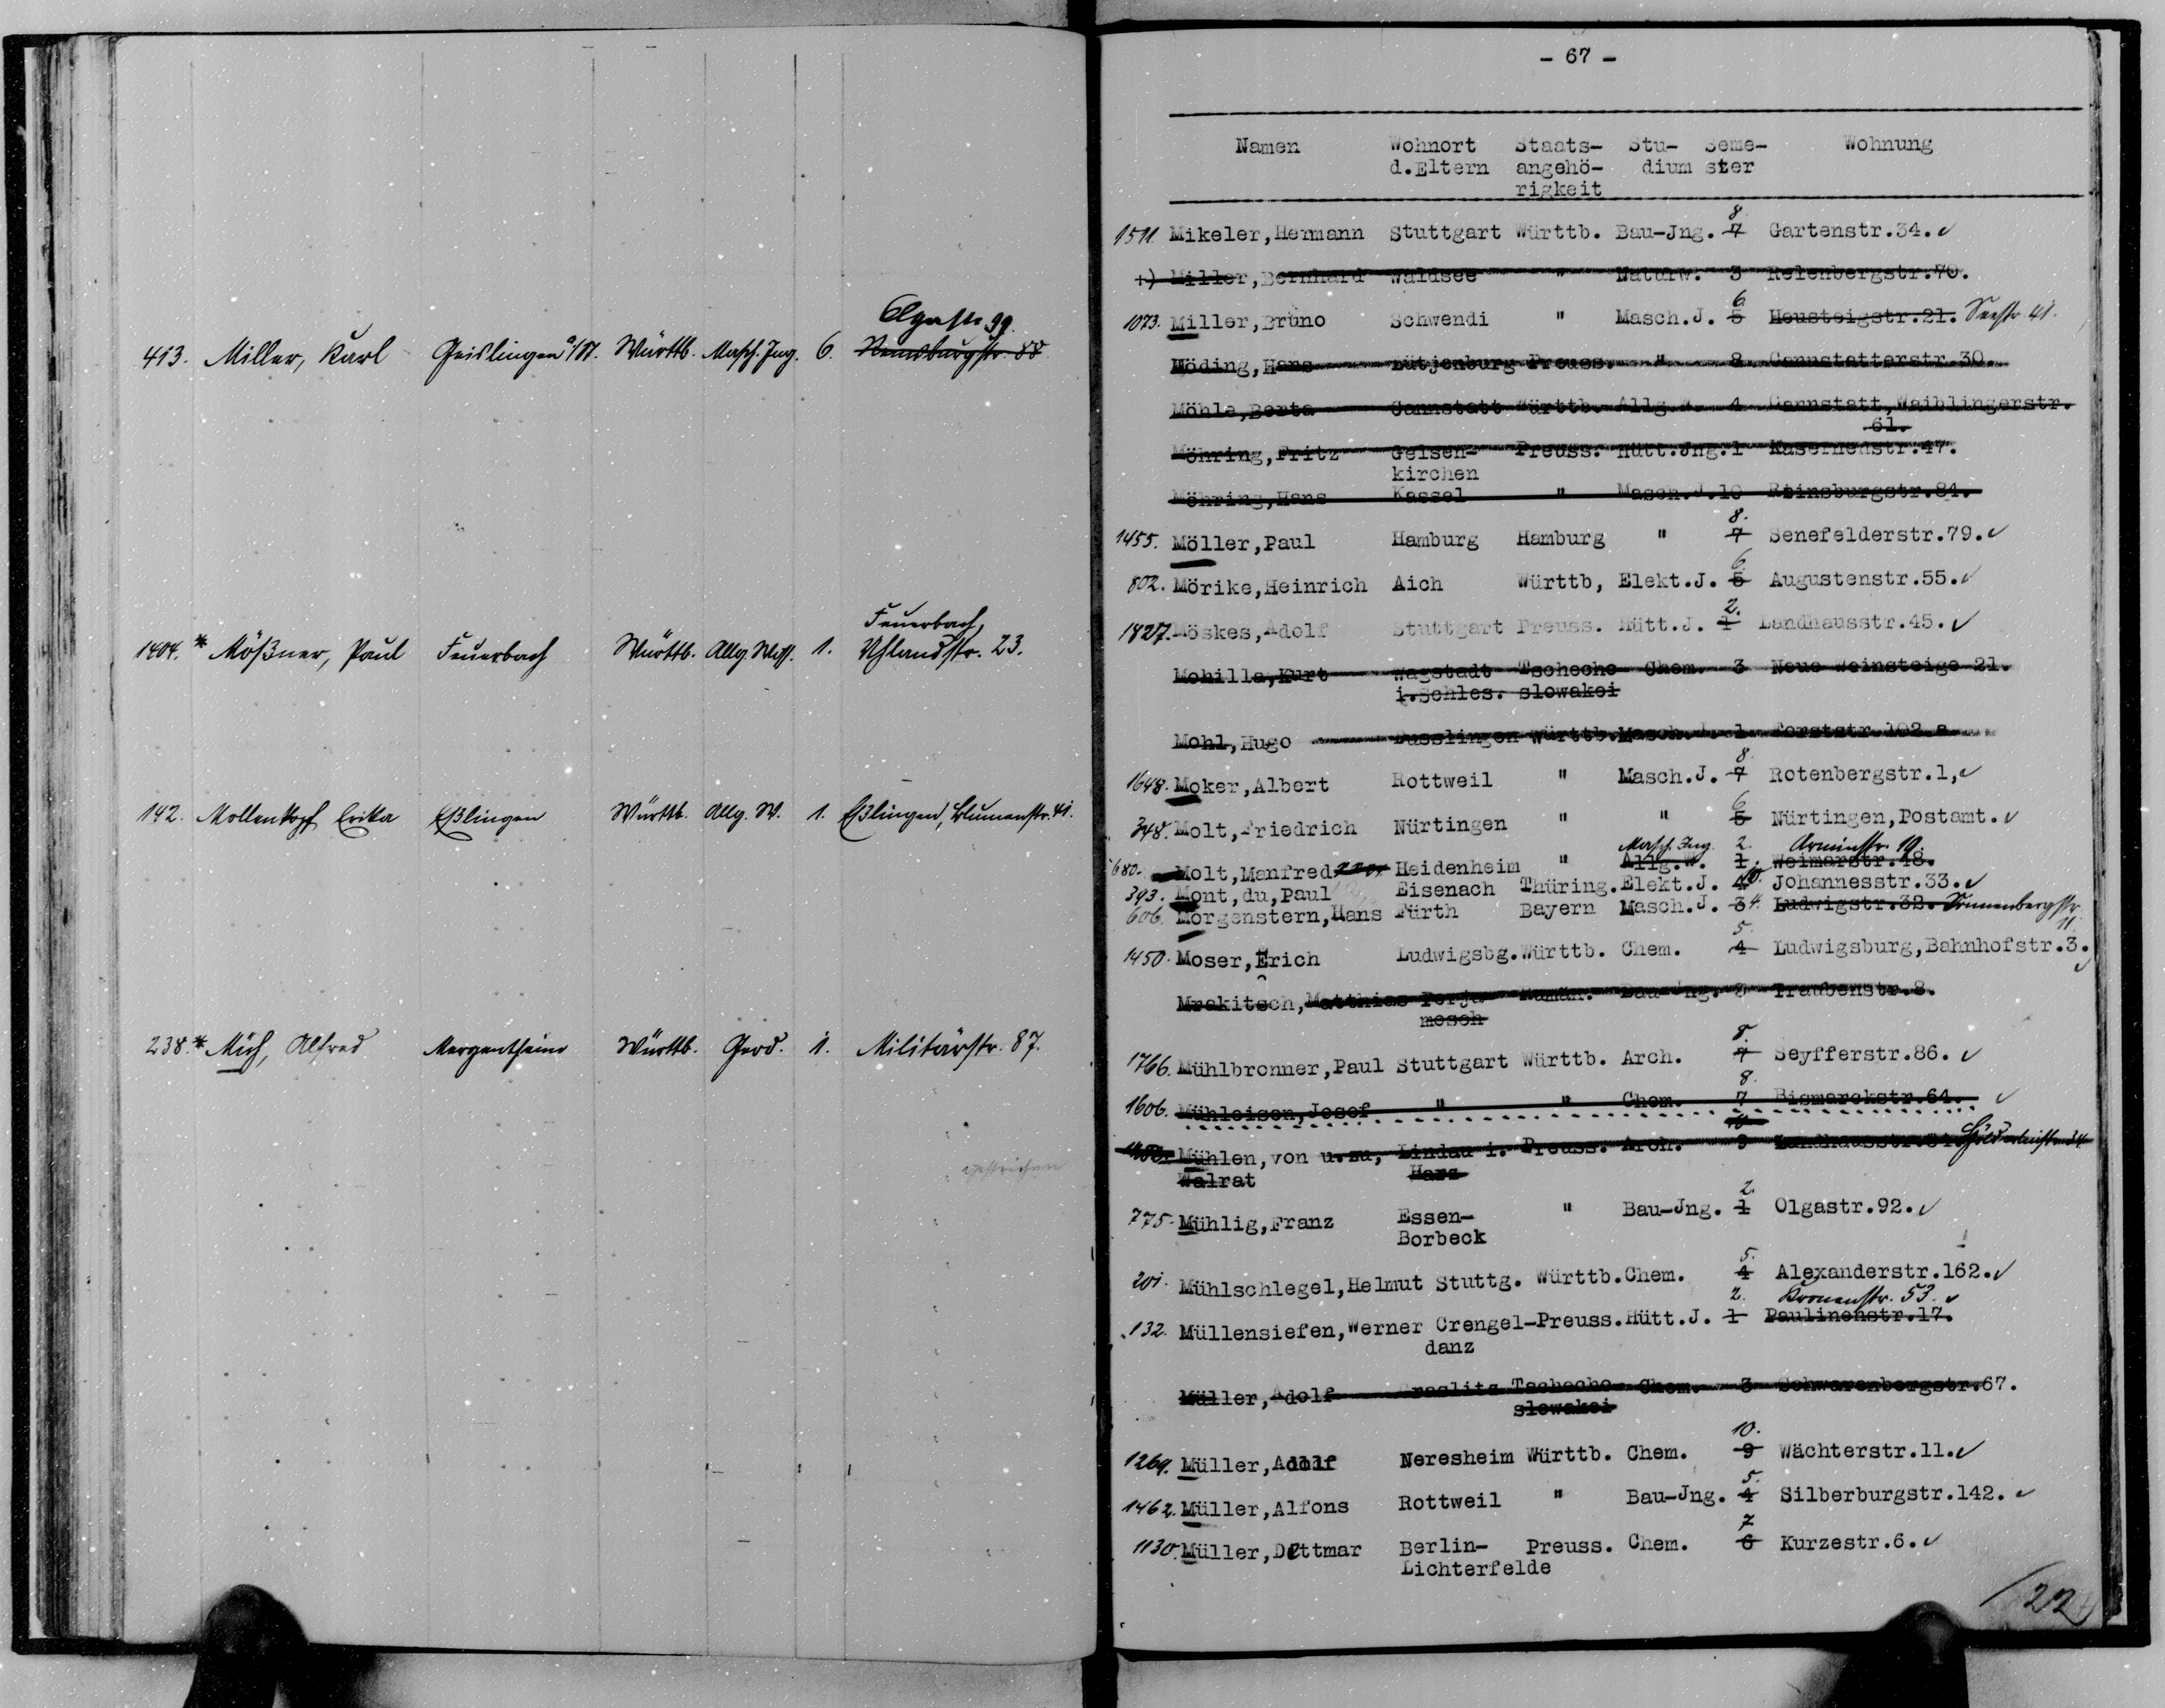 Olgastr. 99.
413. Miller, Karl Geislingen a/St. Württb. Masch. Ing. 6. Reinsburgstr. 88
Feuerbach,
1404. * Mößner, Paul Feuerbach Württb. Allg. Wiss. 1. Uhlandstr. 23.
142. Mollenkopf, Erika Eßlingen Württb. Allg. W. 1. Eßlingen, Blumenstr. 41.
238. * Müh, Alfred Mergentheim Württb. Geod. 1. Militärstr. 87.
gestrichen
- 67 -
Namen Wohnort Staats- Stu- Seme- Wohnung
d.Eltern angehö- dium ster
rigkeit
8
1511. Mikeler,Hermann Stuttgart Württb. Bau-Jng. 7 Gartenstr.34. ✓
+) Miller,Bernhard Waldsee " Naturw. 3 Relenbergstr.70.
6
1073. Miller,Bruno Schwendi " Masch.J. 5 Heusteigstr.21. Seestr. 41.
Möding,Hans Lütjenburg Preuss. " 8 Cannstatterstr.30.
Möhle,Berta Cannstatt Württb. Allg.W. 4 Cannstatt,Waiblingerstr.
61.
Möhring,Fritz Gelsen- Preuss. Hütt.Jng.1 Kasernenstr.47.
kirchen
Möhring,Hans Kassel " Masch.J.10 Reinsburgstr.84.
8.
1455. Möller,Paul Hamburg Hamburg " 7 Senefelderstr.79. ✓
6
802. Mörike,Heinrich Aich Württb, Elekt.J. 5 Augustenstr.55. ✓
2.
1827. Möskes,Adolf Stuttgart Preuss. Hütt.J. 1 Landhausstr.45. ✓
Mohilla,Kurt Wagstadt Tschecho Chem. 3 Neue Weinsteige 21.
i.Schles. slowakei
Mohl,Hugo Dusslingen Württb.Masch.J. 1 Forststr.102 a
8.
1648. Moker,Albert Rottweil " Masch.J. 7 Rotenbergstr.1, ✓
6
348. Molt,Friedrich Nürtingen " " 5 Nürtingen,Postamt. ✓
Masch. Ing. 2. Arminstr. 19.
680. Molt,Manfred Heidenheim " Allg.W. 1. Weimarstr.48.
393. Mont,du,Paul Eisenach Thüring.Elekt.J. 4 Johannesstr.33. ✓
606. Morgenstern,Hans Fürth Bayern Masch.J. 3 4. Ludwigstr.32. Sonnenbergstr.
11
5.
1450. Moser,Erich Ludwigsbg.Württb. Chem. 4 Ludwigsburg,Bahnhofstr.3. ✓
Mrakitsch,Matthias Perja Rumän. Bau-Jng. Traubenstr.8.
mosch
8.
1766. Mühlbronner,Paul Stuttgart Württb. Arch. 7 Seyfferstr.86. ✓
8.
1606. Mühleisen,Josef " " Chem. 7 Bismarckstr.64. ✓
10
Mühlen,von u.zu, Lindau i. Preuss. Arch. 9 Landhausstr. Hölderlinstr. 34
Walrat Harz
2.
775. Mühlig,Franz Essen- " Bau-Jng. 1 Olgastr.92. ✓
Borbeck
5.
201. Mühlschlegel,Helmut Stuttg. Württb.Chem. 4 Alexanderstr.162. ✓
2. Kronenstr. 53. ✓
132. Müllensiefen,Werner Crengel-Preuss.Hütt.J. 1 Paulinenstr.17.
danz
Müller,Adolf Graslitz Tschecho Chem. 3 Schwarenbergstr.67.
slowakei
10.
1269. Müller,Adolf Neresheim Württb. Chem. 9 Wächterstr.11. ✓
5.
1462. Müller,Alfons Rottweil " Bau-Jng. 4 Silberburgstr.142. ✓
7
1130. Müller,Dettmar Berlin- Preuss. Chem. 6 Kurzestr.6. ✓
Lichterfelde
122